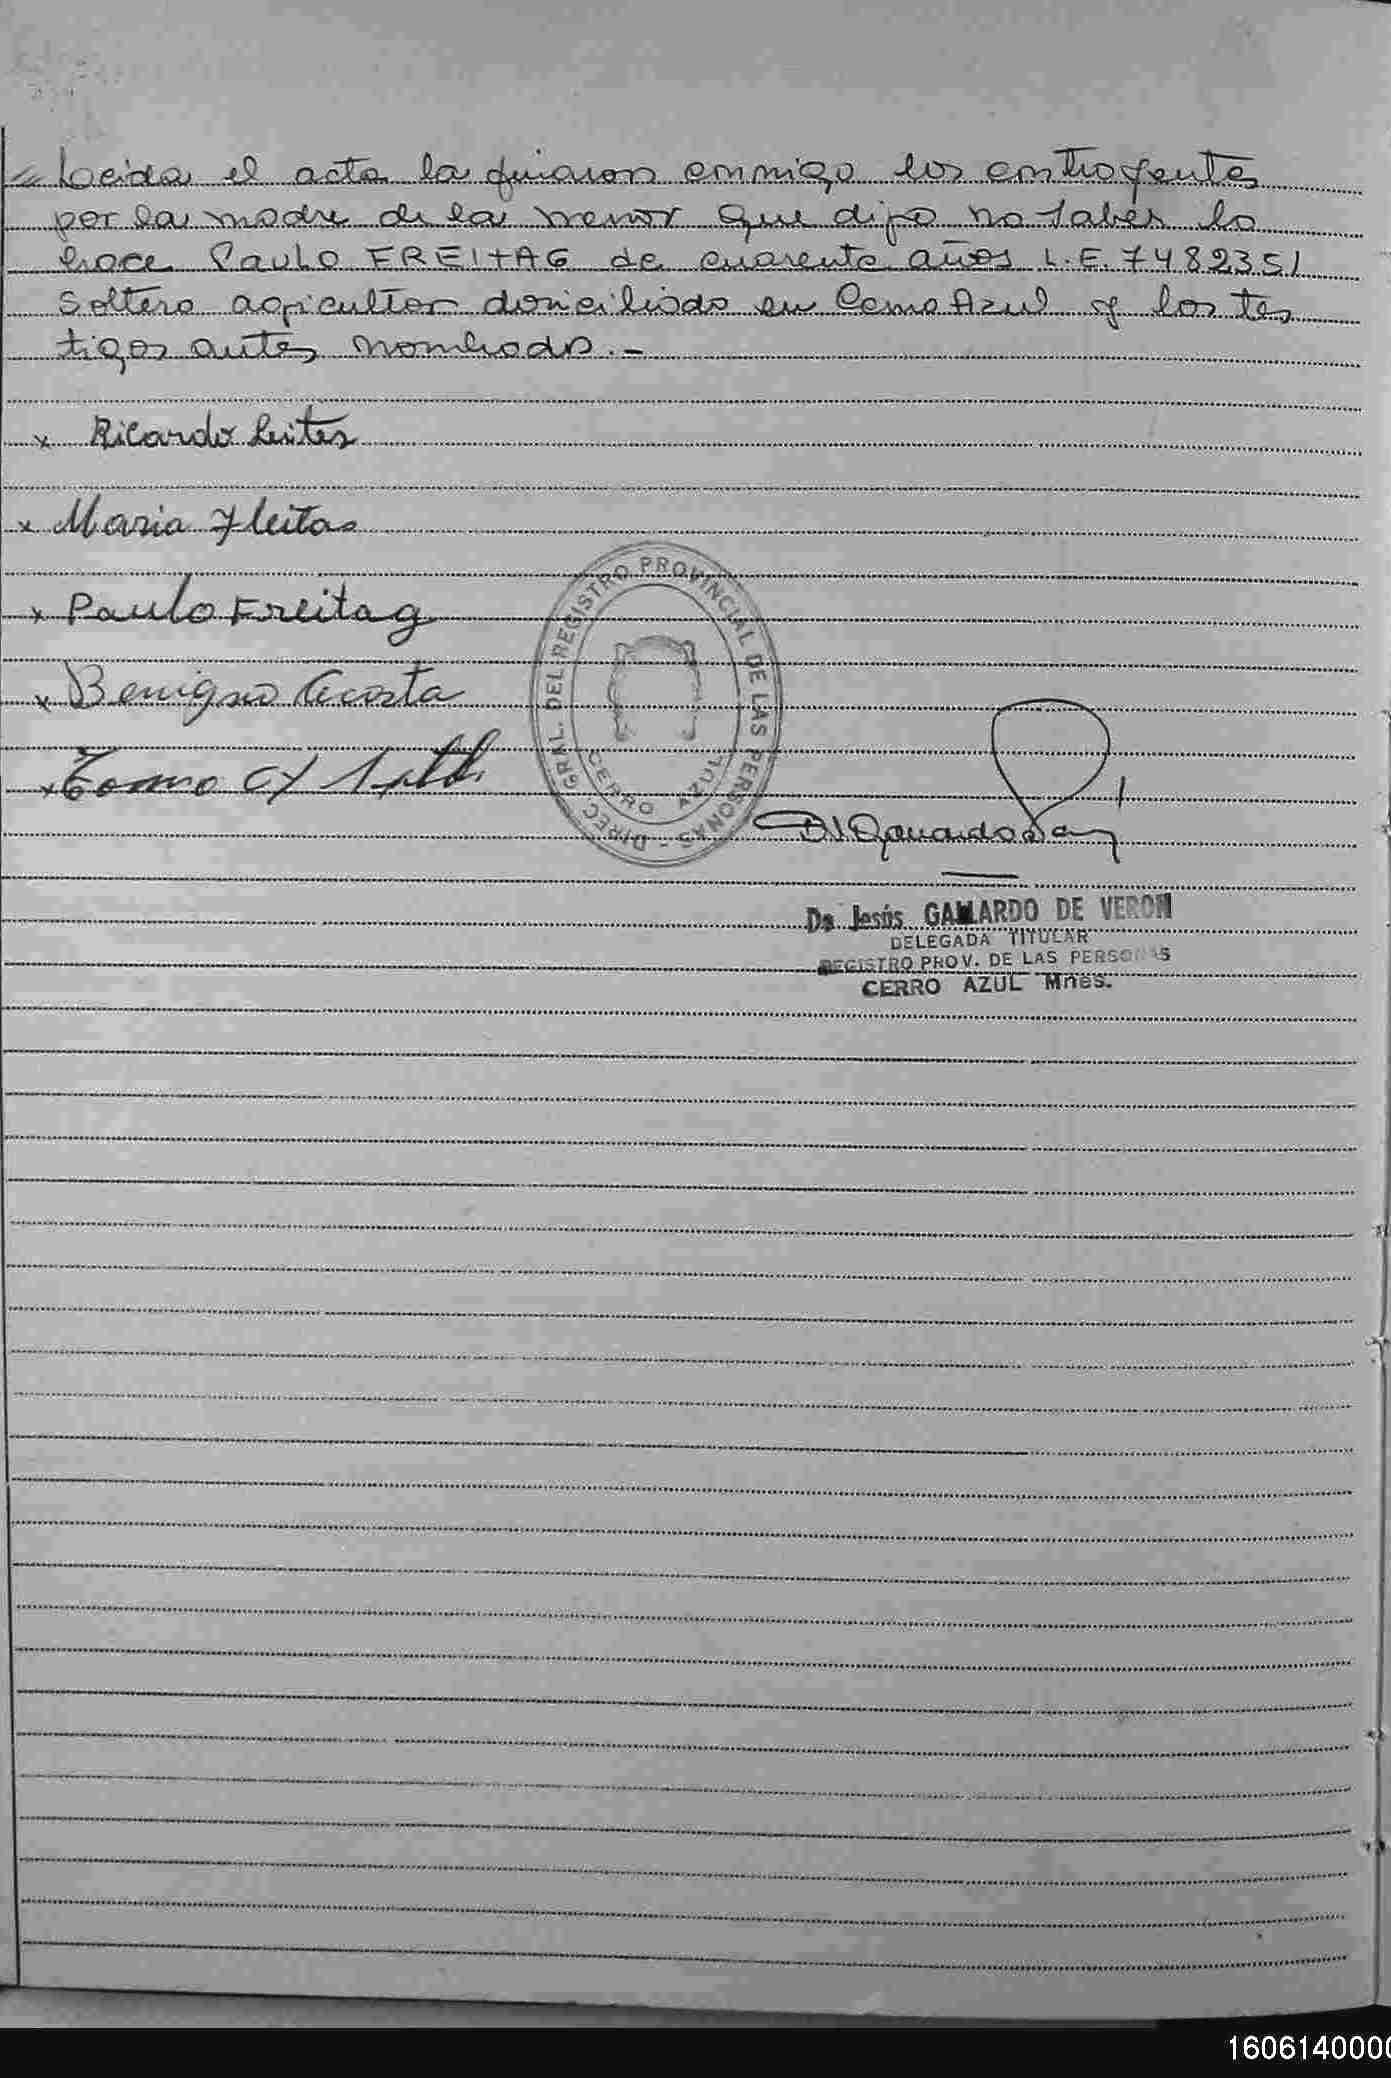 Leida el acta la firmaron conmigo los contrayentes
por la madre de la menor que dijo no saber lo
hace Paulo FREITAG de cuarenta años L.E. 7482351
Soltero agricultor domiciliado en Cerro Azul y los tes
tigos antes nombrados.-
x Ricardo Leites
x Maria Fleitas
x Paulo Freitag
x Benigno Acosta
x
DIREC. GRAL. DEL REGISTRO PROVINCIAL DE LAS PERSONAS -
CERRO AZUL
Da Jesús GALLARDO DE VERON
DELEGADA TITULAR
REGISTRO PROV. DE LAS PERSONAS
CERRO AZUL Mnes.
1606140000